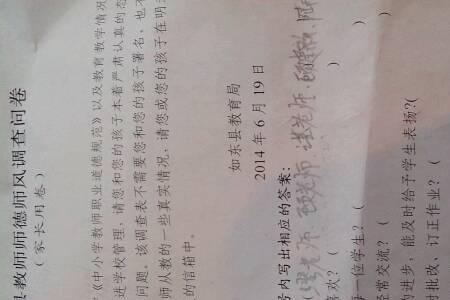 县教师师德师风调查问卷
（家长用卷）
《中小学教师职业道德规范》以及教育教学情况
进学校管理，请您和您的孩子本着严肃认真的态
问题。该调查表不需要您和您的孩子署名，也不
师从教的一些真实情况，请您或您的孩子在明
的信箱中。
如东县教育局
2014 年 6 月 19 日
号内写出相应的答案：
老师、老师、老师、
喜欢？（ ）
每一位学生？（ ）
经常交流？（ ）
的进步，能及时给予学生表扬？（
的批改、订正作业？（ ）